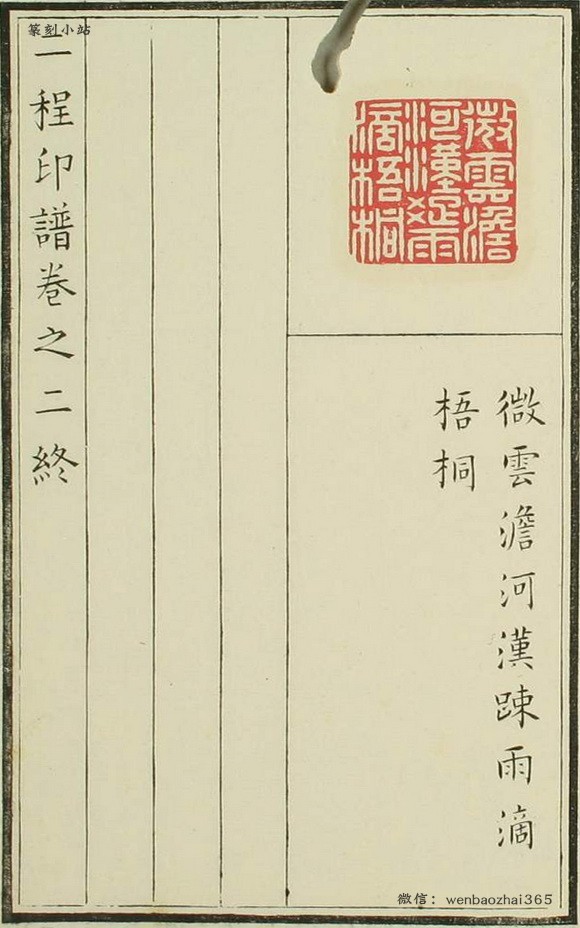 篆刻小站
微雲澹
河漢疏雨
滴梧桐
微雲澹河漢踈雨滴
梧桐
二程印譜卷之二終
微信：wenbaozhai365